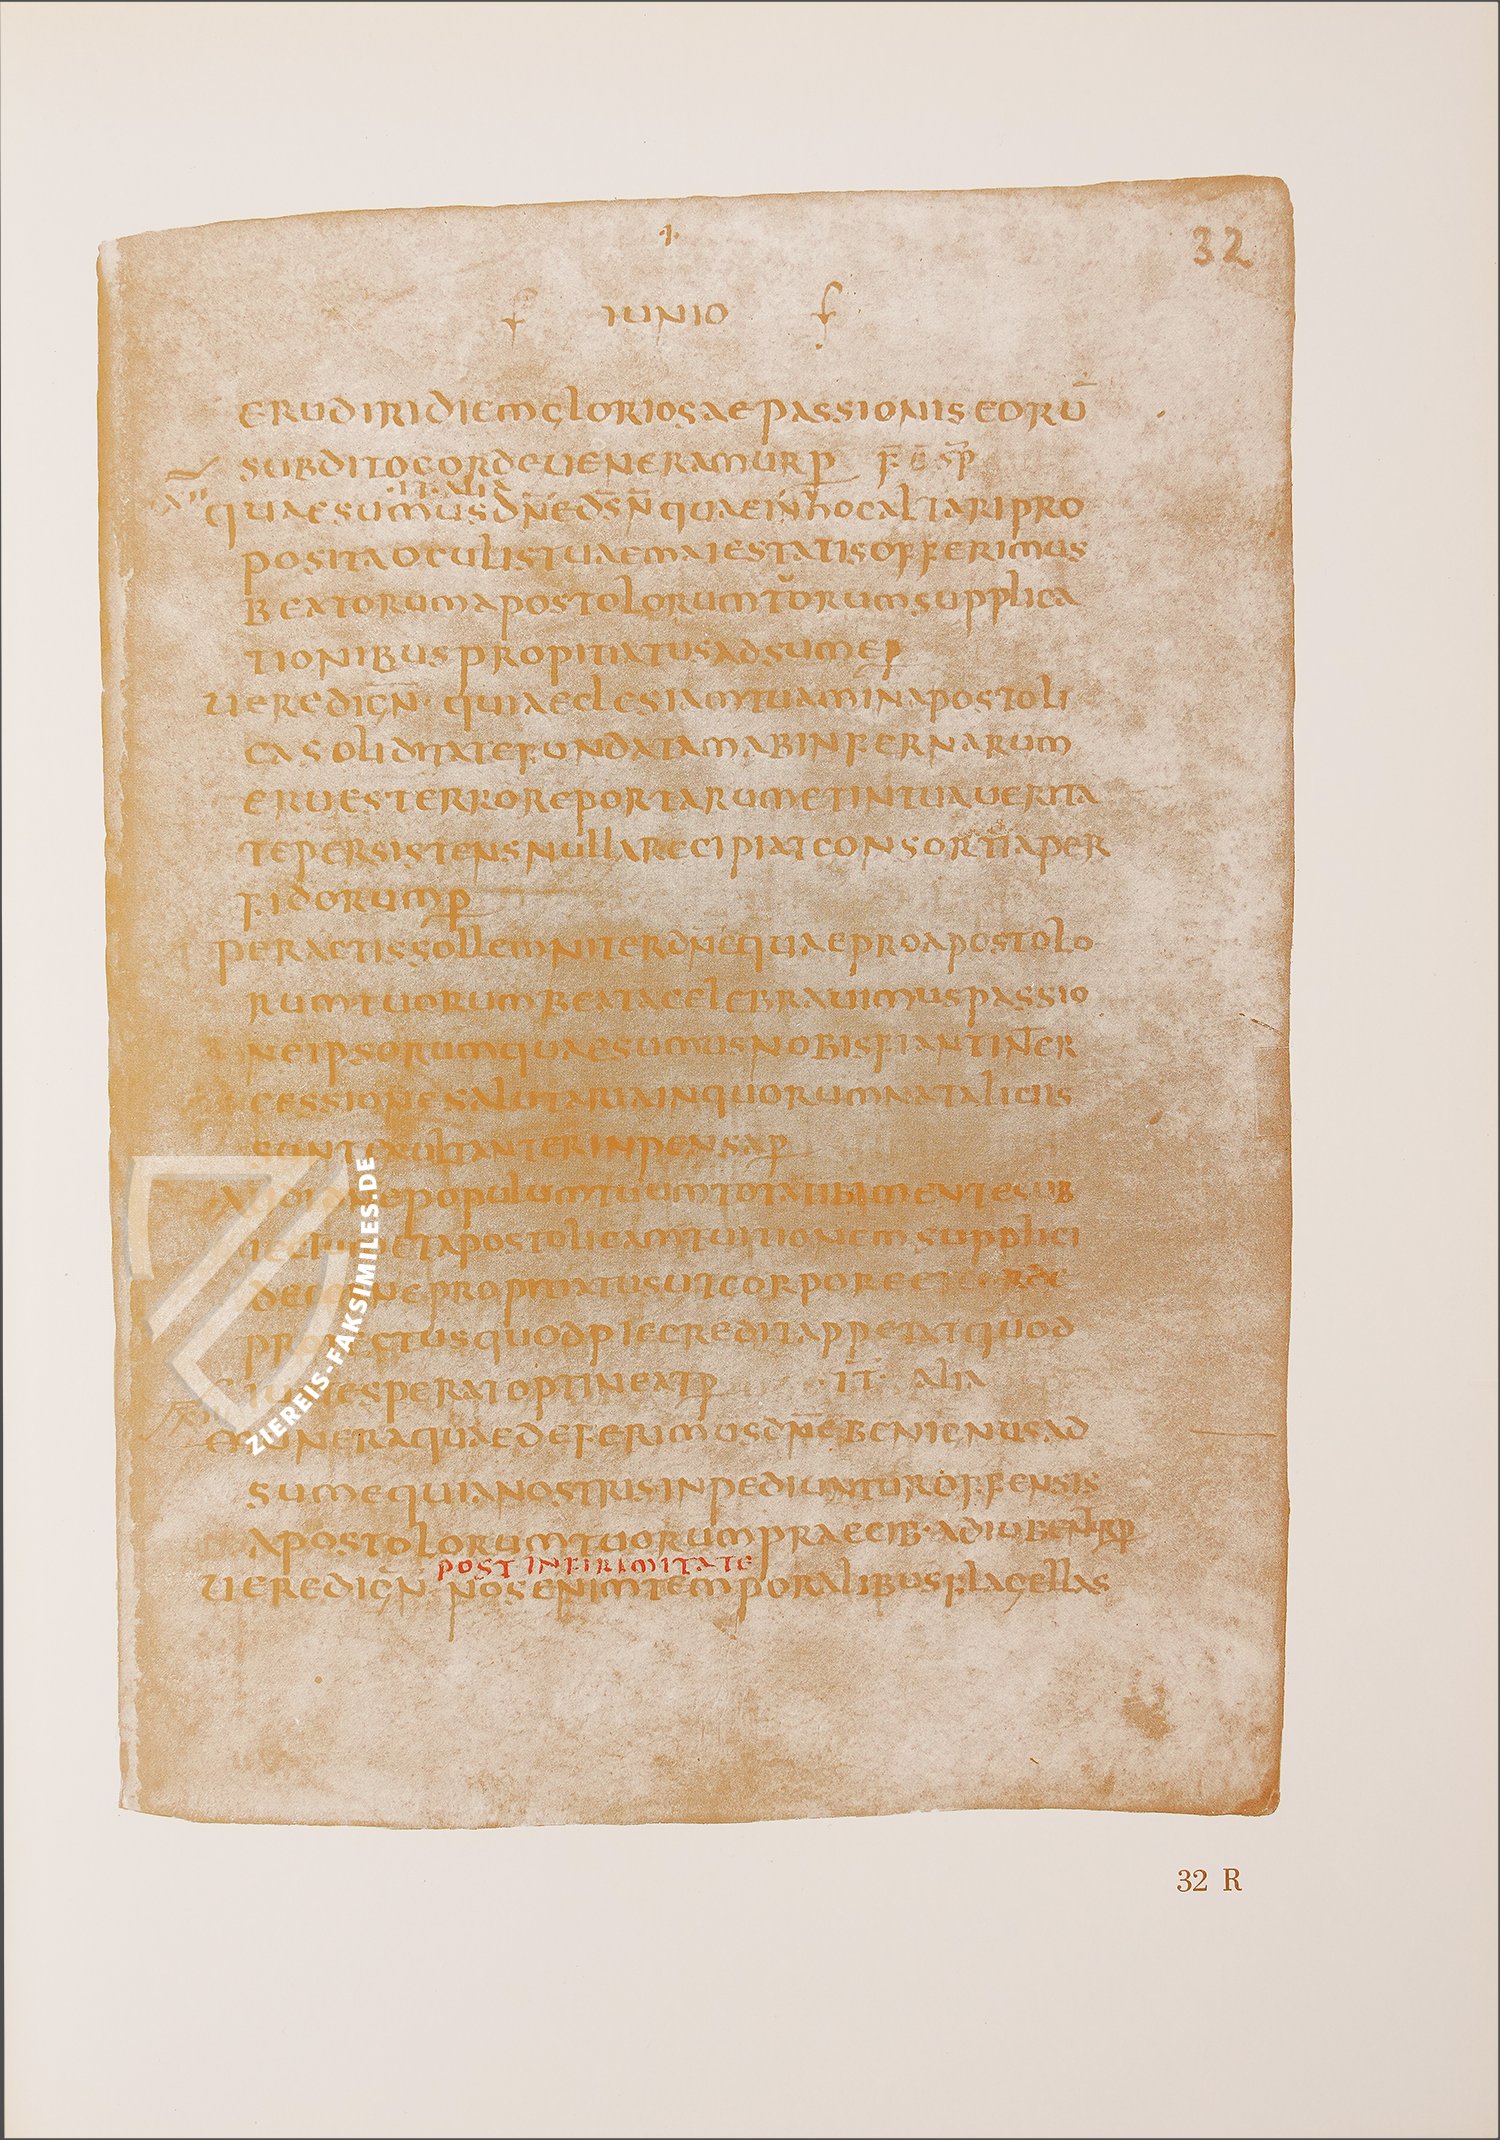 32
IUNIO
ERUDIRI DIEM GLORIOSAE PASSIONIS EORŪ
SUBDITO CORDE UENERAMUR P
IT· ALIA
QUAESUMUS DN̄E DS̄ N̄ QUAE IN HOC ALTARI PRO
POSITA OCULIS TUAE MAIESTATIS OFFERIMUS
BEATORUM APOSTOLORUM TORUM SUPPLICA
TIONIBUS PROPITIATUS ADSUME P
UERE DIGN̄· QUI AECLESIAM TUAM IN APOSTOLI
CA SOLIDITATE FUNDATAM AB INFERNARUM
ERUES TERRORE PORTARUM ET IN TUA UERITA
TE PERSISTENS NULLA RECIPIAT CONSORTIA PER
FIDORUM P
PERACTIS SOLLEMNITER DN̄E QUAE PRO APOSTOLO
RUM TUORUM BEATA CELEBRAUIMUS PASSIO
NE IPSORUM QUAESUMUS NOBIS FIANT INTER
CESSIONE SALUTARIA IN QUORUM NATALICIIS
SUNT EXULTANTER INPENSA P
POPULUM TUUM TOTA TIBI MENTE SUB
ET APOSTOLICAM TUITIONEM SUPPLICI
NE PROPITIATUS UT CORPORE
PROTECTUS QUOD PIE CREDIT APPETAT QUOD
SPERAT OPTINEAT P IT· ALIA
MUNERA QUAE DEFERIMUS DN̄E BENIGNUS AD
SUME QUIA NOSTRIS INPEDIUNTUR OFFENSIS
APOSTOLORUM TUORUM PRAECIB· ADIUBENT P
POST INFIRIMITATE
UERE DIGN̄· NOS ENIM TEMPORALIBUS FLAGELLAS
ZIEREIS-FAKSIMILES.DE
32 R